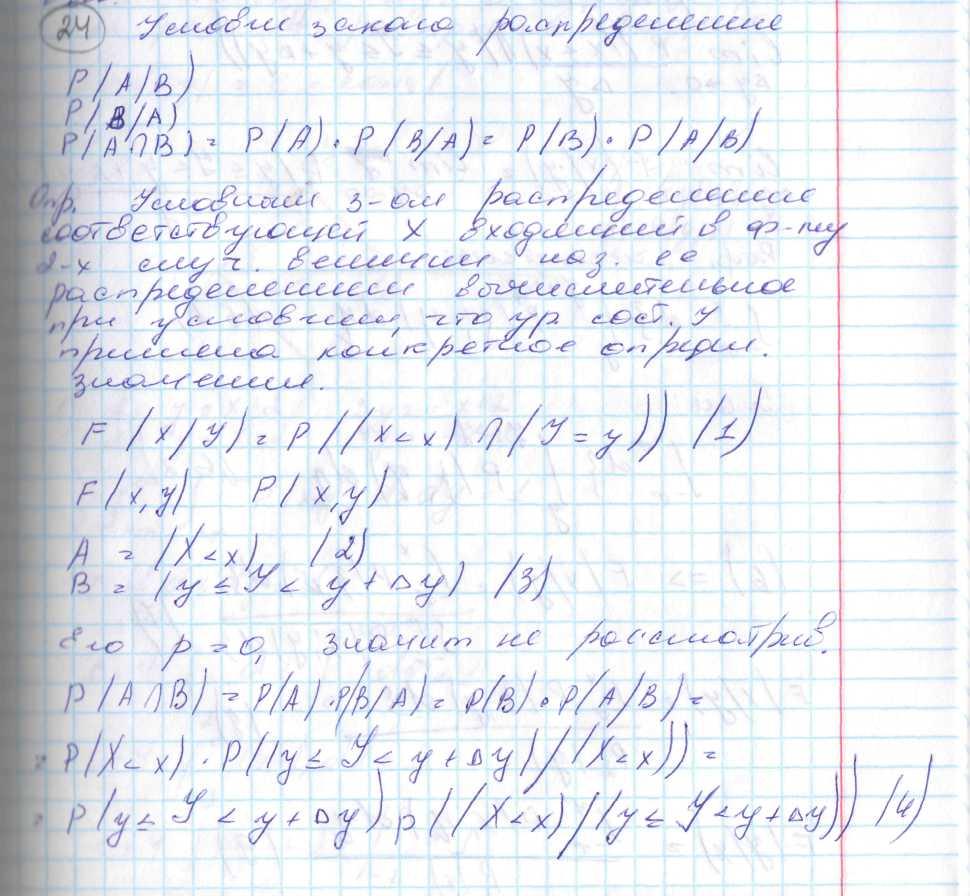 24 Условн закона распределение
P(A/B)
P(B/A)
P(A∩B) = P(A) · P(B/A) = P(B) · P(A/B)
Опр. Условным з-ом распределение
соответствующей X входящий в ф-му
2-х случ. величин наз. ее
распределением вычислительное
при условии, что ур. сост. y
примена конкретное опредл.
значение.
F(X/Y) = P((X<x) ∩ (Y=y)) (1)
F(x,y) P(x,y)
A = (X<x) (2)
B = (y ≤ Y < y+Δy) (3)
Его p=0, значит не рассматрив.
P(A∩B) = P(A)·P(B/A) = P(B)·P(A/B) =
= P(X<x) · P((y ≤ Y < y+Δy)/(X<x)) =
= P(y ≤ Y < y+Δy) p((X<x)/(y ≤ Y < y+Δy)) (4)